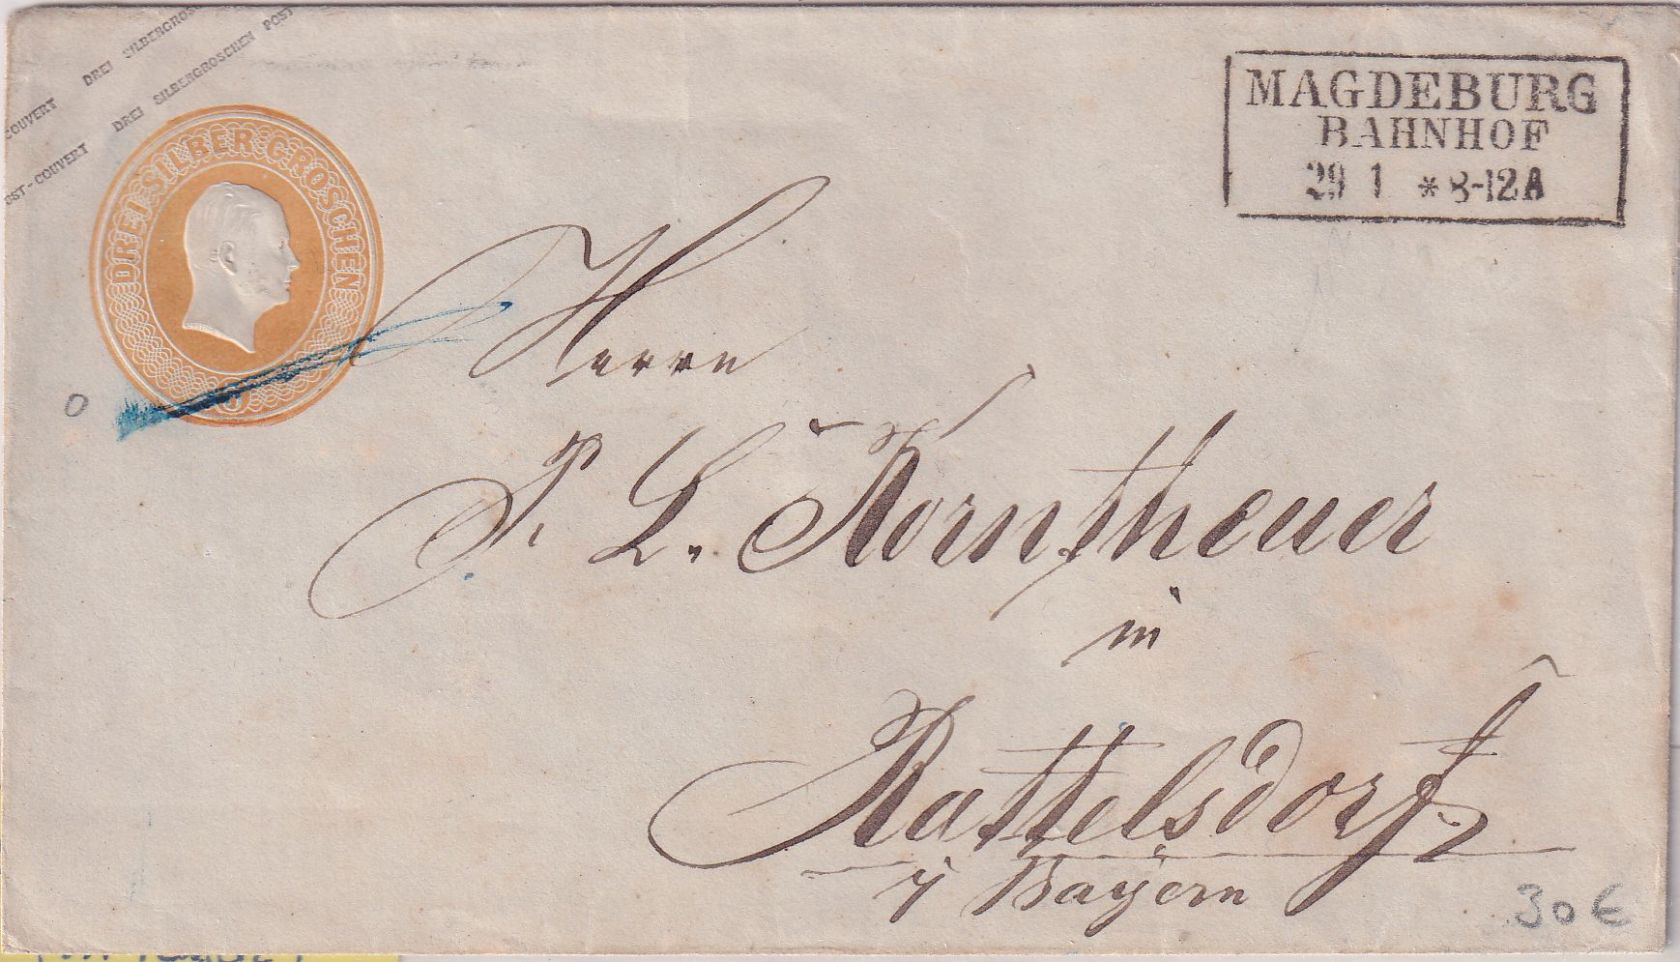 DREI SILBERGROSCHEN
COUVERT DREI SILBERGROSCHEN POST
POST-COUVERT
DREI SILBER GROSCHEN
MAGDEBURG
BAHNHOF
29 1 * 8-12A
Herrn
P. L. Korntheuer
in
Rattelsdorf
Bayern
0
30 €